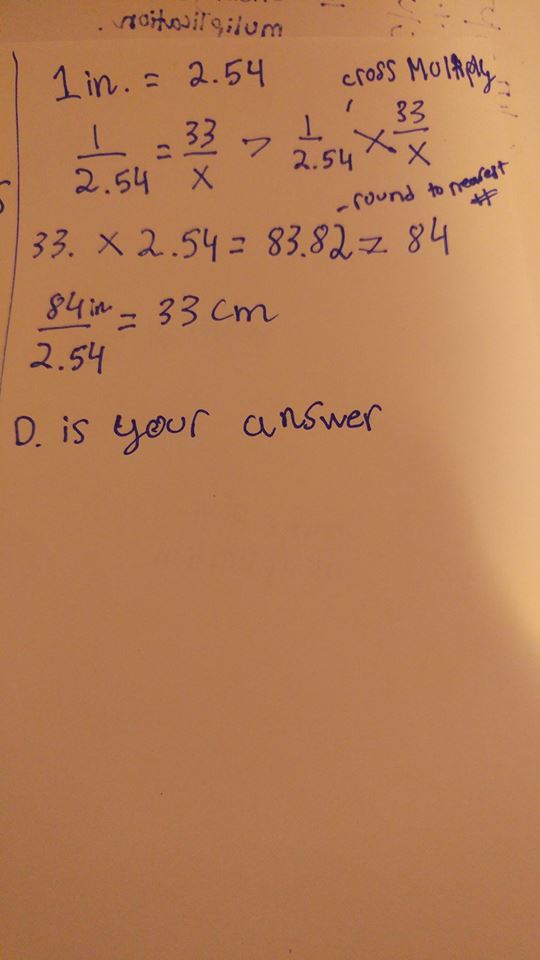 muliplication.
1 in. = 2.54 cross Multiply
1/2.54 = 33/x > 1/2.54 × 33/x
- round to nearest #
33. × 2.54 = 83.82 = 84
84in/2.54 = 33 cm
D. is your answer